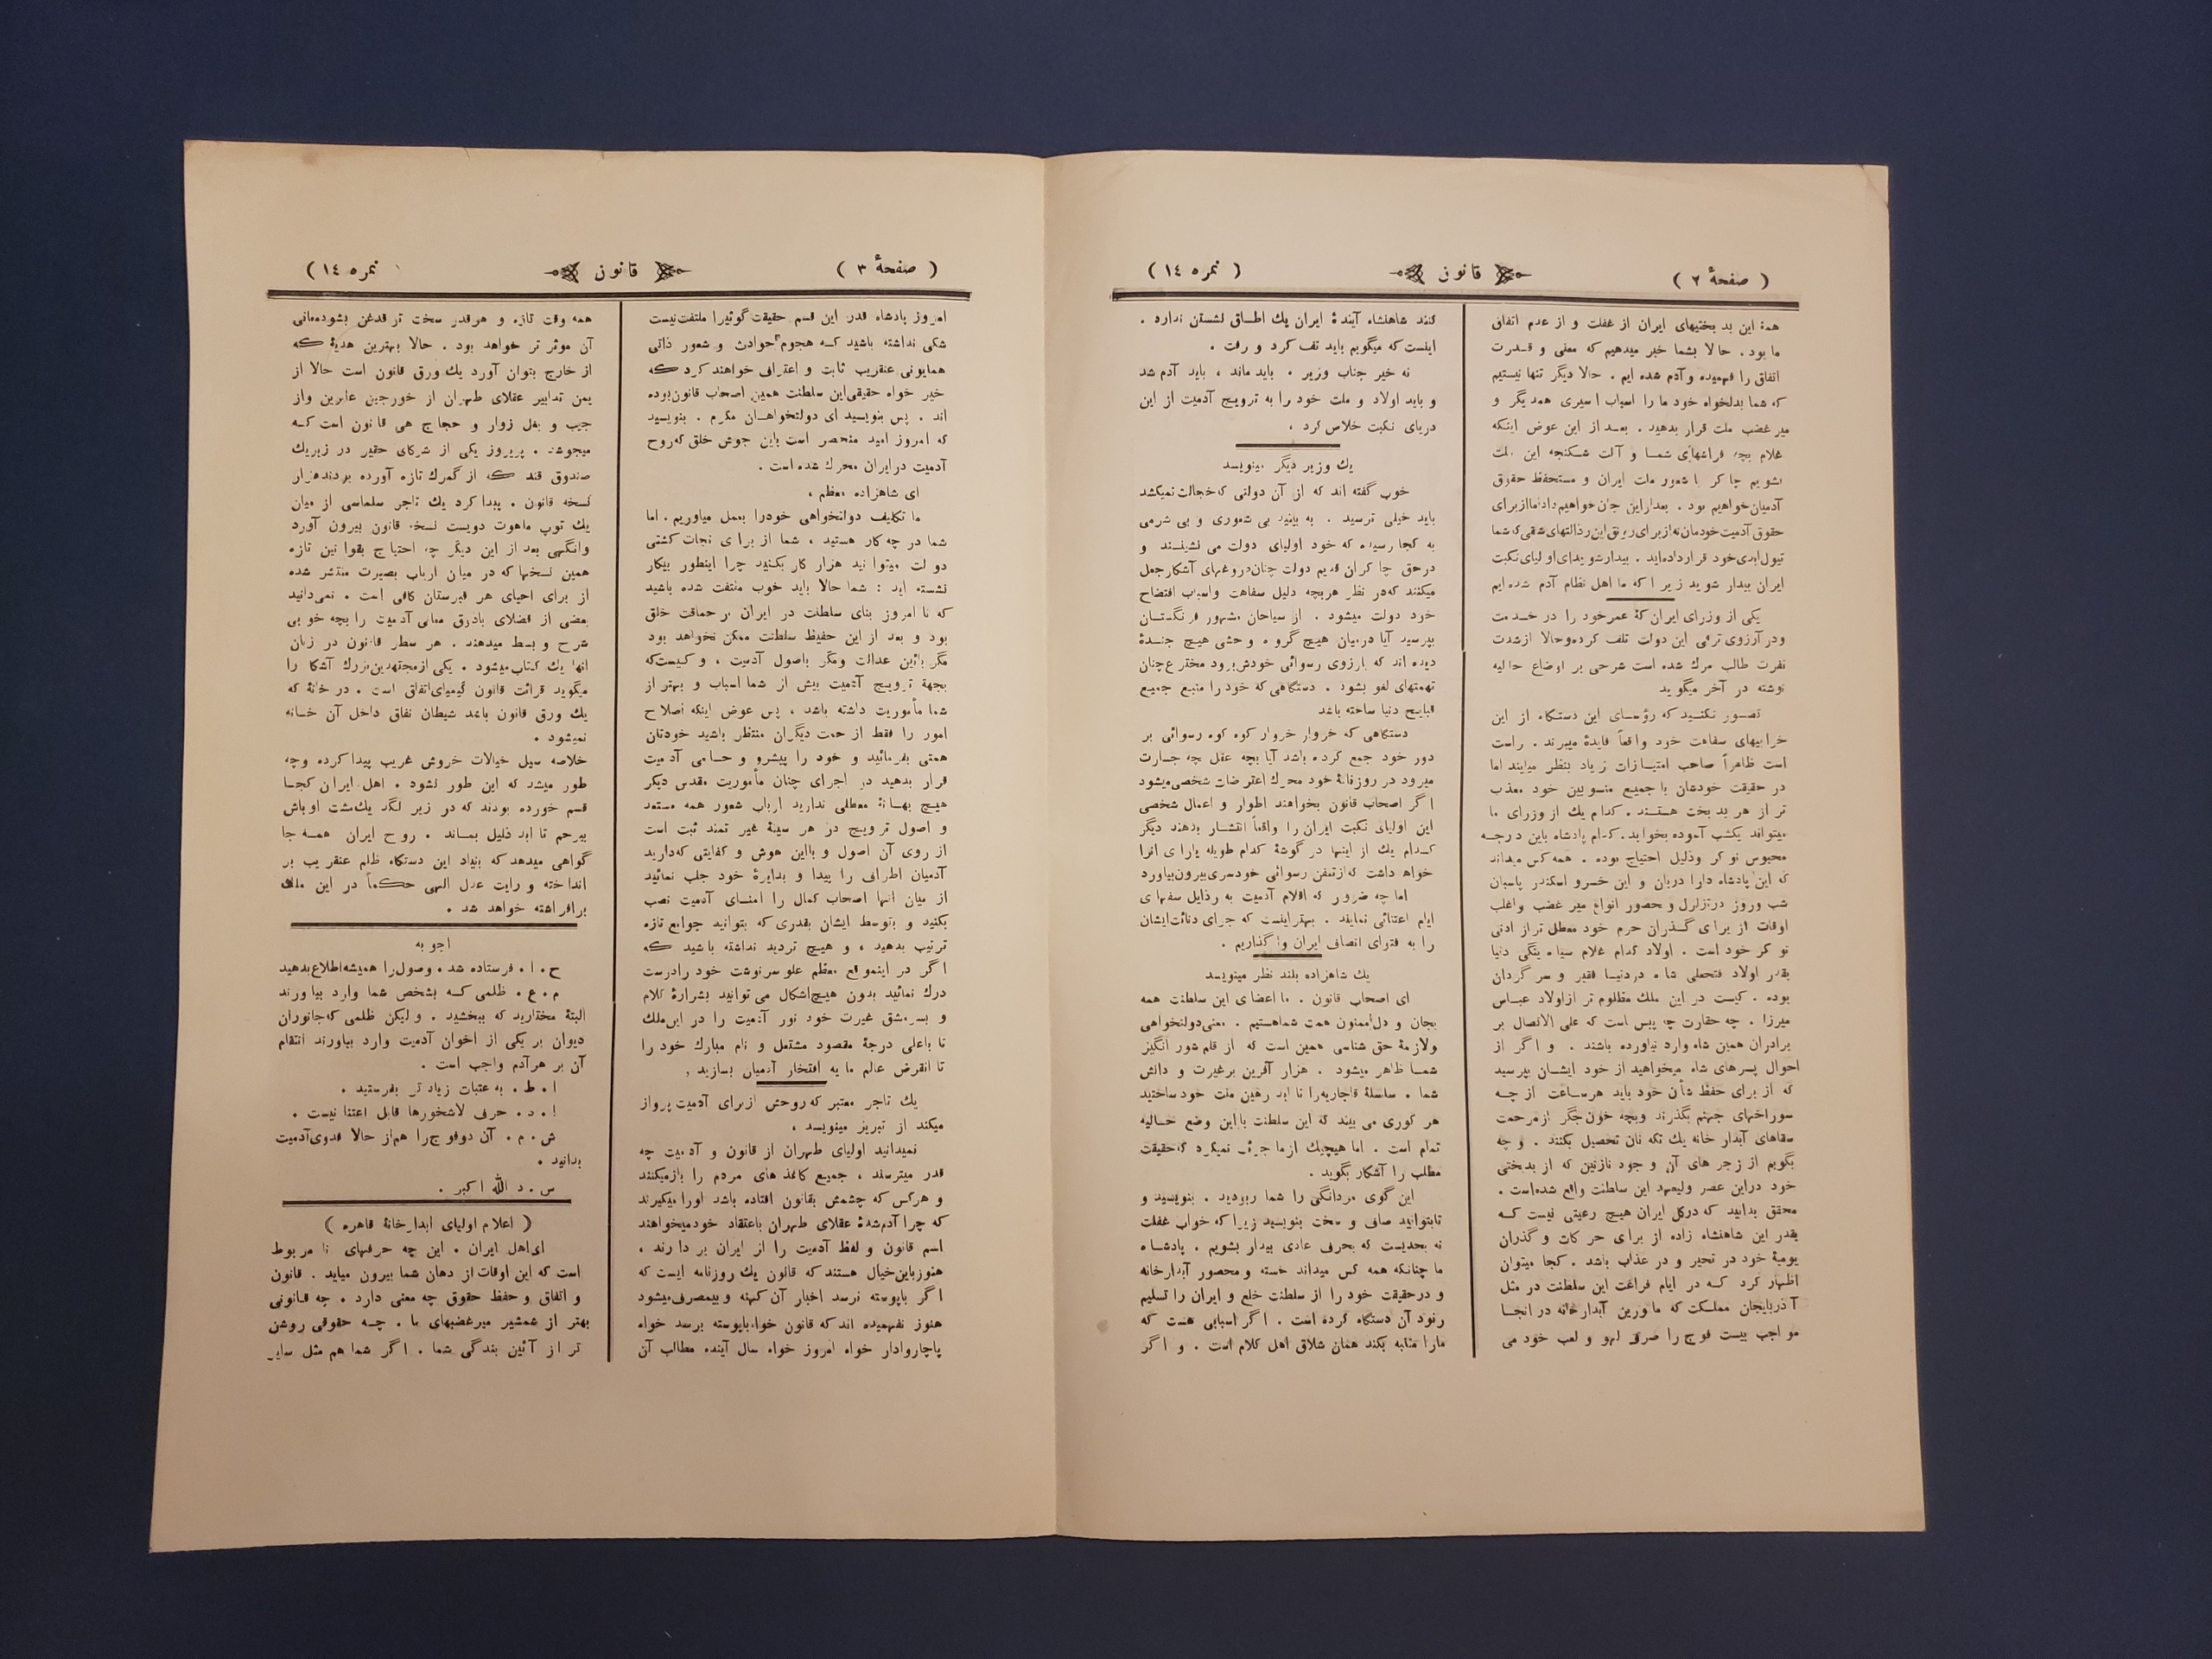 ( صفحهٔ ٢ ) قانون ( نمره ١٤ )
همهٔ این بد بختیهای ایران از غفلت و از عدم اتفاق
ما بود . حالا بشما خبر میدهیم که معنی و قدرت
اتفاق را فهمیده و آدم شده ایم . حالا دیگر تنها نیستیم
که شما بدلخواه خود ما را اسباب اسیری همدیگر و
میر غضب ملت قرار بدهید . بعد از این عوض اینکه
غلام بچه فراشهای شما و آلت شکنجه این ملت
بشویم چاکر با شعور ملت ایران و مستحفظ حقوق
آدمیان خواهیم بود . بعد از این جان خواهیم داد اما از برای
حقوق آدمیت خودمان نه از برای رونق این رذالتهای شقی که شما
تیول ابدی خود قرار داده اید . بیدار شوید ای اولیای نکبت
ایران بیدار شوید زیرا که ما اهل نظام آدم شده ایم
یکی از وزرای ایران که عمر خود را در خدمت
و در آرزوی ترقی این دولت تلف کرده و حالا از شدت
نفرت طالب مرک شده است شرحی بر اوضاع حالیه
نوشته در آخر میگوید
تصور نکنید که رؤسای این دستکاه از این
خرابیهای سفاهت خود واقعاً فایدهٔ میبرند . راست
است ظاهراً صاحب امتیازات زیاد بنظر میایند اما
در حقیقت خودشان با جمیع منسوبین خود معذب
تر از هر بد بخت هستند . کدام یك از وزرای ما
میتواند یکشب آسوده بخوابد . کدام پادشاه باین درجه
محبوس نوکر وذلیل احتیاج بوده . همه کس میداند
که این پادشاه دارا دربان و این خسرو اسکندر پاسبان
شب وروز در تزلزل و حضور انواع میر غضب واغلب
اوقات از برای گذران حرم خود معطل تر از ادنی
نوکر خود است . اولاد کدام غلام سیاه ینگی دنیا
بقدر اولاد فتحعلی شاه در دنیا فقیر و سر گردان
بوده . کیست در این ملك مظلوم تر از اولاد عباس
میرزا . چه حقارت چه یبس است که علی الاتصال بر
برادران همین شاه وارد نیاورده باشند . و اگر از
احوال پسرهای شاه میخواهید از خود ایشان بپرسید
که از برای حفظ شأن خود باید هر ساعت از چه
سوراخهای جهنم بگذرند وبچه خون جگر از مرحمت
سقاهای آبدار خانه یك تکه نان تحصیل بکنند . و چه
بگویم از زجر های آن وجود نازنین که از بدبختی
خود دراین عصر ولیعهد این سلطنت واقع شده است .
محقق بدانید که درکل ایران هیچ رعیتی نیست که
بقدر این شاهنشاه زاده از برای حرکات و گذران
یومیهٔ خود در تحیر و در عذاب باشد . کجا میتوان
اظهار کرد که در ایام فراغت این سلطنت در مثل
آذربایجان مملکت که مأمورین آبدار خانه در انجا
مواجب بیست فوج را صرف لهو و لعب خود می
کنند شاهنشاه آیندهٔ ایران یك اطاق نشستن ندارد .
اینست که میگویم باید تف کرد و رفت .
نه خیر جناب وزیر . باید ماند ، باید آدم شد
و باید اولاد و ملت خود را به ترویج آدمیت از این
دریای نکبت خلاص کرد .
یك وزیر دیگر مینویسد
خوب گفته اند که از آن دولتی که خجالت نمیکشد
باید خیلی ترسید . به بینید بی شعوری و بی شرمی
به کجا رسیده که خود اولیای دولت می نشینند و
درحق چاکران قدیم دولت چنان دروغهای آشکار جعل
میکنند که در نظر هر بچه دلیل سفاهت واسباب افتضاح
خود دولت میشود . از سیاحان مشهور فرنگستان
بپرسید آیا درمیان هیچ گروه وحشی هیچ جنبدهٔ
دیده اند که بارزوی رسوائی خودش برود مخترع چنان
تهمتهای لغو بشود . دستگاهی که خود را منبع جمیع
قبایح دنیا ساخته باشد
دستگاهی که خروار خروار کوه کوه رسوائی بر
دور خود جمع کرده باشد آیا بچه عقل بچه جسارت
میرود در روزنامهٔ خود محرك اعتراضات شخصی میشود
اگر اصحاب قانون بخواهند اطوار و اعمال شخصی
این اولیای نکبت ایران را واقعاً انتشار بدهند دیگر
کدام یك از اینها در گوشهٔ کدام طویله یارای انرا
خواهد داشت که از تعفن رسوائی خود سری بیرون بیاورد
اما چه ضرور که اقلام آدمیت به رذایل سفهای
ایام اعتنائی نمایند . بهتر اینست که جزای دنائت ایشان
را به فتوای انصاف ایران واگذاریم .
یك شاهزاده بلند نظر مینویسد
ای اصحاب قانون . ما اعضای این سلطنت همه
بجان و دل ممنون همت شما هستیم . معنی دولتخواهی
ولازمهٔ حق شناسی همین است که از قلم شور انگیز
شما ظاهر میشود . هزار آفرین برغیرت و دانش
شما . سلسلهٔ قاجاریه را تا ابد رهین منت خود ساختید
هر کوری می بیند که این سلطنت با این وضع حالیه
تمام است . اما هیچیك از ما جرئت نمیکرد که حقیقت
مطلب را آشکار بگوید .
این گوی مردانگی را شما ربودید . بنویسید و
تابتوانید صاف و سخت بنویسید زیرا که خواب غفلت
نه بحدیست که بحرف عادی بیدار بشویم . پادشاه
ما چنانکه همه کس میداند خسته و محصور آبدارخانه
و درحقیقت خود را از سلطنت خلع و ایران را تسلیم
رنود آن دستگاه کرده است . اگر اسبابی هست که
مارا متنبه بکند همان شلاق اهل کلام است . و اگر
( صفحهٔ ٣ ) قانون نمره ١٤ )
امروز پادشاه قدر این قسم حقیقت گوئیرا ملتفت نیست
شکی نداشته باشید که هجوم حوادث و شعور ذاتی
همایونی عنقریب ثابت و اعتراف خواهند کرد که
خیر خواه حقیقی این سلطنت همین اصحاب قانون بوده
اند . پس بنویسید ای دولتخواهان مکرم . بنویسید
که امروز امید منحصر است باین جوش خلق که روح
آدمیت در ایران محرك شده است .
ای شاهزاده معظم ،
ما تکلیف دولتخواهی خودرا بعمل میاوریم . اما
شما در چه کار هستید ، شما از برای نجات کشتی
دولت میتوانید هزار کار بکنید چرا اینطور بیکار
نشسته اید : شما حالا باید خوب ملتفت شده باشید
که تا امروز بنای سلطنت در ایران بر حماقت خلق
بود و بعد از این حفیظ سلطنت ممکن نخواهد بود
مگر بائین عدالت ومگر باصول آدمیت ، و کیست که
بجهة ترویج آدمیت بیش از شما اسباب و بهتر از
شما مأموریت داشته باشد ، پس عوض اینکه اصلاح
امور را فقط از همت دیگران منتظر باشید خودتان
همتی بفرمائید و خود را پیشرو و حامی آدمیت
قرار بدهید در اجرای چنان مأموریت مقدس دیگر
هیچ بهانهٔ معطلی ندارید ارباب شعور همه مستعد
و اصول ترویج در هر سینهٔ غیر تمند ثبت است
از روی آن اصول و بااین هوش و کفایتی که دارید
آدمیان اطراف را پیدا و بدایرهٔ خود جلب نمائید
از میان انها اصحاب کمال را امنای آدمیت نصب
بکنید و بتوسط ایشان بقدری که بتوانید جوامع تازه
ترتیب بدهید ، و هیچ تردید نداشته باشید که
اگر در اینموقع معظم علو سرنوشت خود را درست
درك نمائید بدون هیچ اشکال می توانید بشرارهٔ کلام
و بسرمشق غیرت خود نور آدمیت را در این ملك
تا باعلی درجهٔ مقصود مشتعل و نام مبارك خود را
تا انقرض عالم مایه افتخار آدمیان بسازید ,
یك تاجر معتبر که روحش ازبرای آدمیت پرواز
میکند از تبریز مینویسد .
نمیدانید اولیای طهران از قانون و آدمیت چه
قدر میترسند ، جمیع کاغذ های مردم را بازمیکنند
و هرکس که چشمش بقانون افتاده باشد اورا میگیرند
که چرا آدم شدهٔ عقلای طهران باعتقاد خود میخواهند
اسم قانون و لفظ آدمیت را از ایران بر دارند .
هنوز باین خیال هستند که قانون یك روزنامه ایست که
اگر باپوسته نرسد اخبار آن کهنه و بیمصرف میشود
هنوز نفهمیده اند که قانون خواه باپوسته برسد خواه
باچاروادار خواه امروز خواه سال آینده مطالب آن
همه وقت تازه و هرقدر سخت تر قدغن بشود معانی
آن موثر تر خواهد بود . حالا بهترین هدیهٔ که
از خارج بتوان آورد یك ورق قانون است حالا از
یمن تدابیر عقلای طهران از خورجین عابرین واز
جیب و بغل زوار و حجاج هی قانون است که
میجوشد . پریروز یکی از شرکای حقیر در زیر یك
صندوق قند که از گمرك تازه آورده بودند هزار
نسخه قانون . پیدا کرد یك تاجر سلماسی از میان
یك توپ ماهوت دویست نسخه قانون بیرون آورد
وانگهی بعد از این دیگر چه احتیاج بقوانین تازه
همین نسخها که در میان ارباب بصیرت منتشر شده
از برای احیای هر قبرستان کافی است . نمی دانید
بعضی از فضلای باذوق معانی آدمیت را بچه خوبی
شرح و بسط میدهند . هر سطر قانون در زبان
انها یك کتاب میشود . یکی از مجتهدین بزرك آشکا را
میگوید قرائت قانون کیمیای اتفاق است . در خانهٔ که
یك ورق قانون باشد شیطان نفاق داخل آن خانه
نمیشود .
خلاصه سیل خیالات خروش غریب پیدا کرده وچه
طور میشد که این طور نشود . اهل ایران کجا
قسم خورده بودند که در زیر لگد یك مشت اوباش
بیرحم تا ابد ذلیل بماند . روح ایران همه جا
گواهی میدهد که بنیاد این دستکاه ظلم عنقریب بر
انداخته و رایت عدل الهی حکماً در این ملك
برافراشته خواهد شد .
اجوبه
ح . ا . فرستاده شد . وصول را همیشه اطلاع بدهید
م . ع . ظلمی که بشخص شما وارد بیاورند
البتهٔ مختارید که ببخشید . و لیکن ظلمی که جانوران
دیوان بر یکی از اخوان آدمیت وارد بیاورند انتقام
آن بر هر آدم واجب است .
ا . ط . به عتبات زیاد تر بفرستید .
ا . د . حرف لاشخورها قابل اعتنا نیست .
ش . م . آن دوفوج را هم از حالا فدوی آدمیت
بدانید .
س . د الله اکبر .
( اعلام اولیای ابدارخانهٔ قاهره )
ای اهل ایران . این چه حرفهای نا مربوط
است که این اوقات از دهان شما بیرون میاید . قانون
و اتفاق و حفظ حقوق چه معنی دارد . چه قانونی
بهتر از شمشیر میرغضبهای ما . چه حقوقی روشن
تر از آئین بندگی شما . اگر شما هم مثل سایر